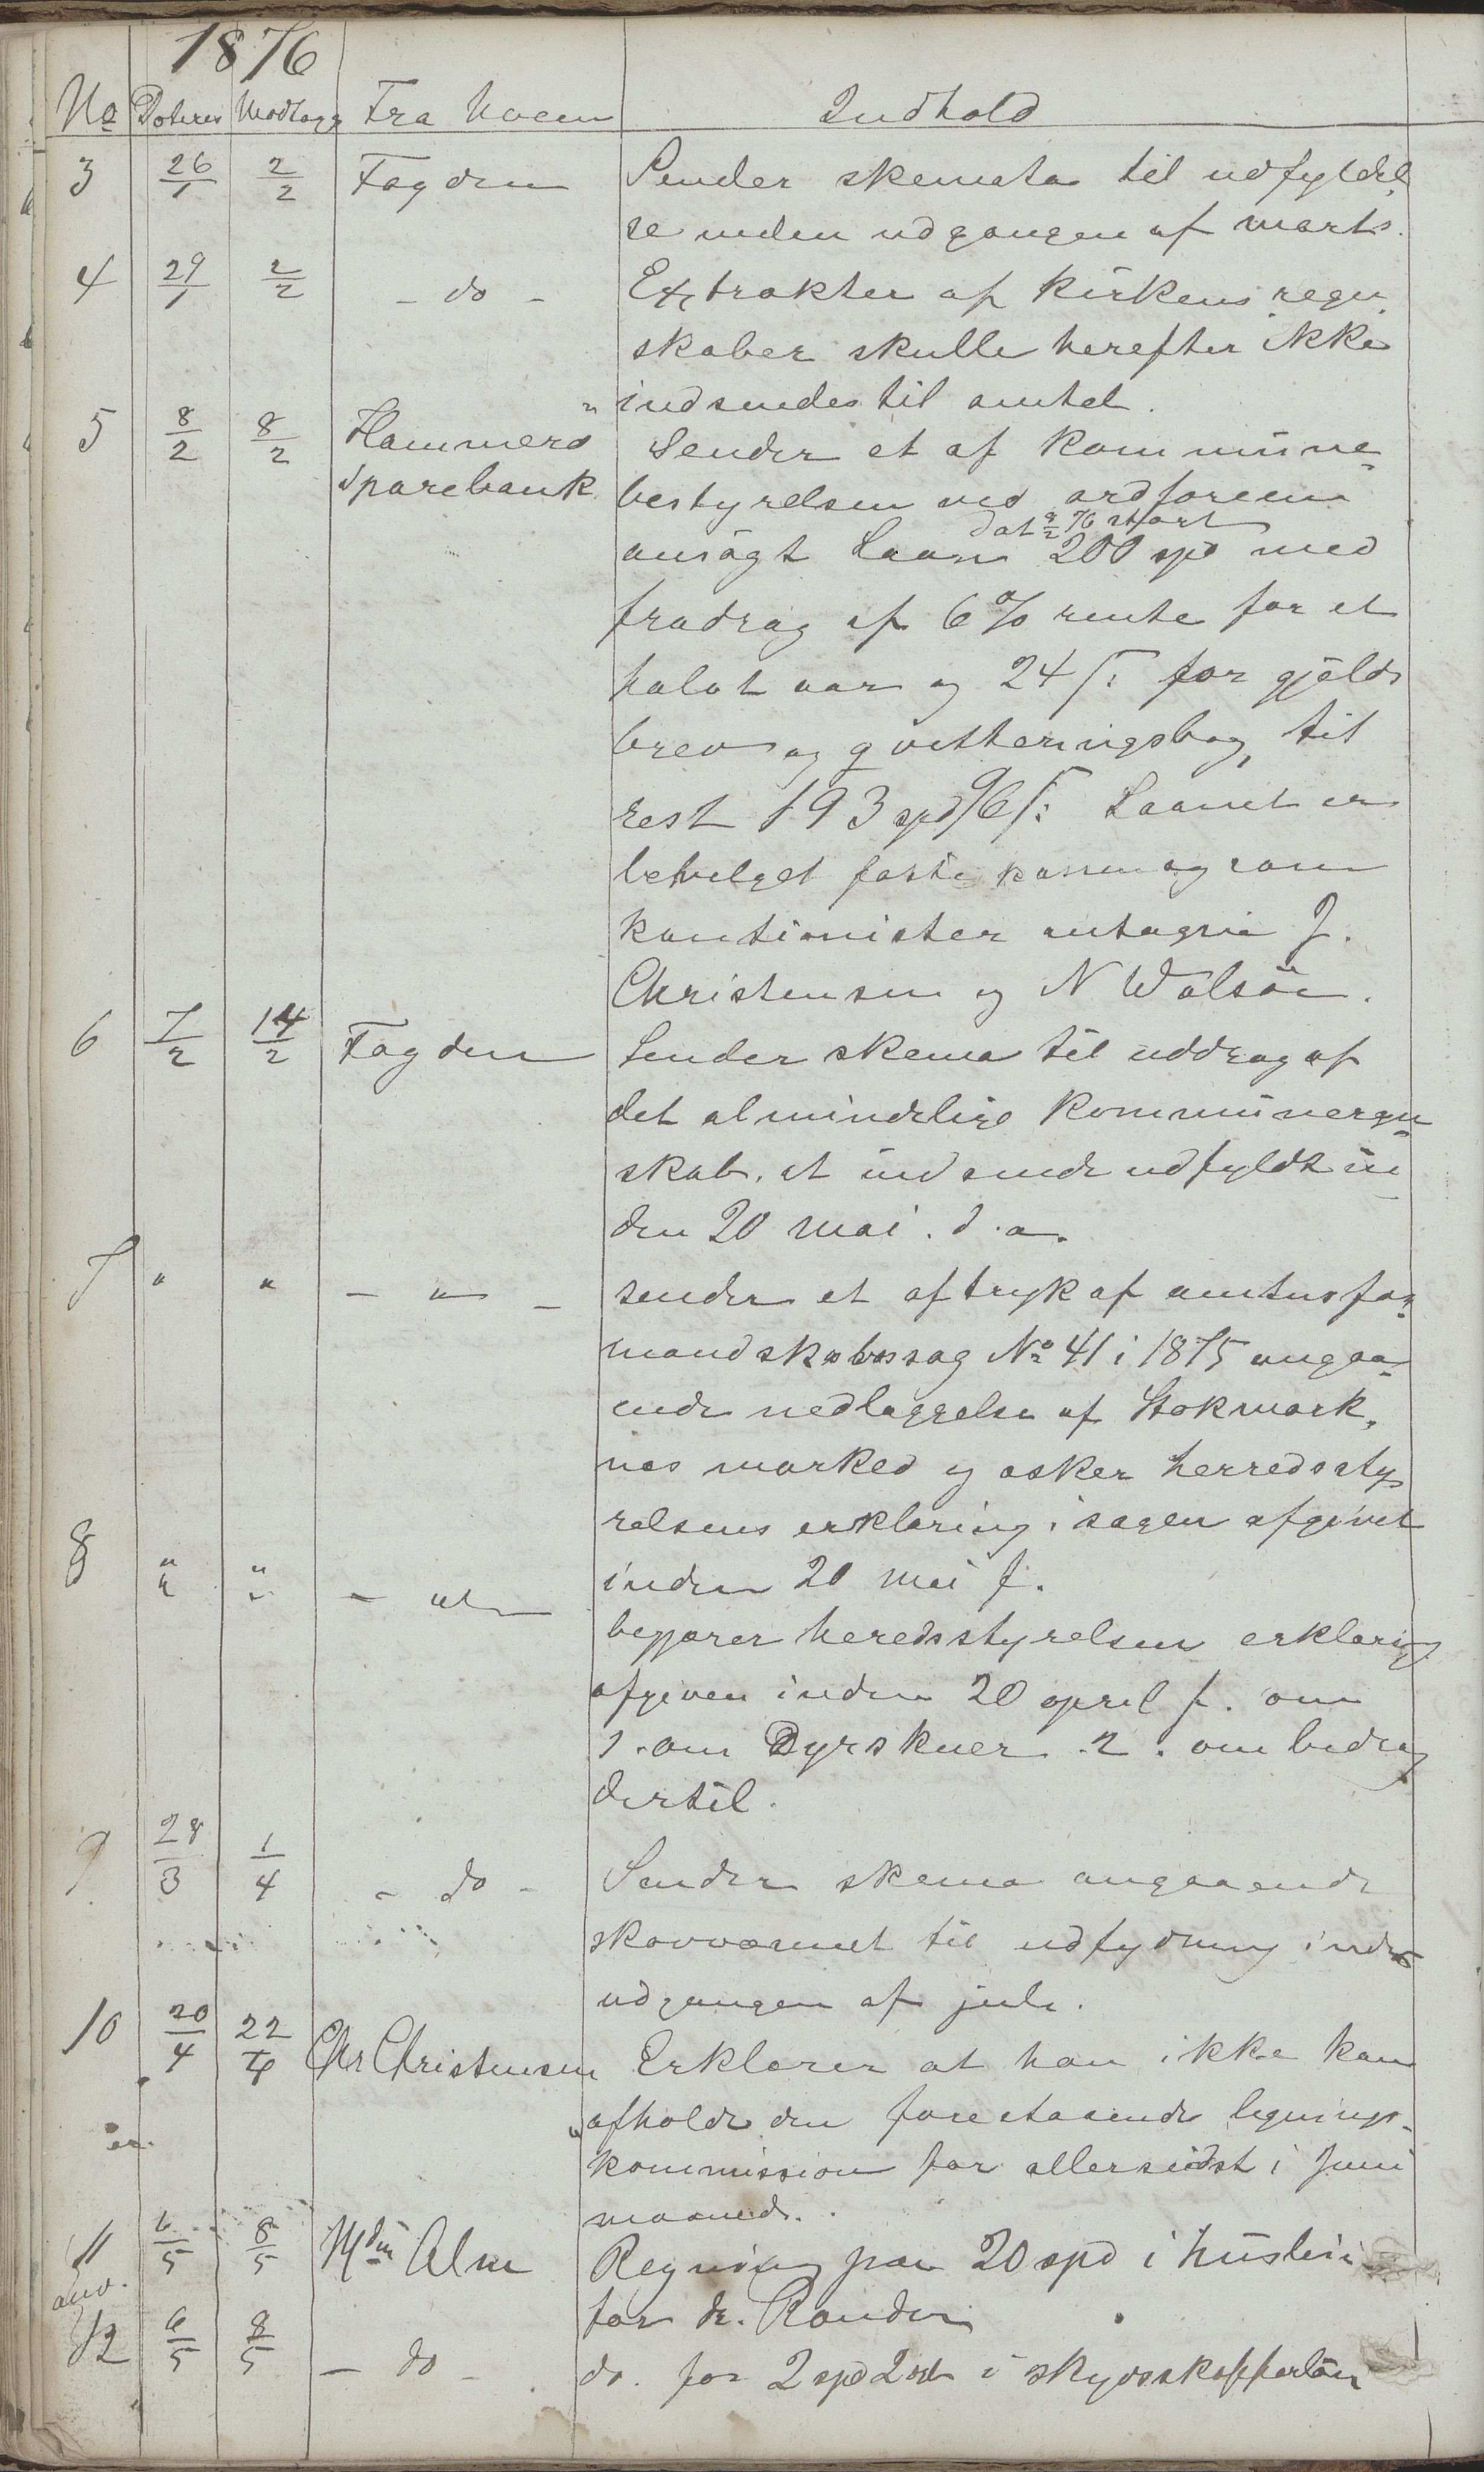 1876
No Dateres Modtages Fra hvem Indhold
3 26/1 2/2 Fogden Sender skemata til udfyldel-
se inden udgangen af marts.
4 29/1 2/2 - do - Extrakter af kirkens regn-
skaber skulle herefter ikke
indsendes til amtet.
5 8/2 8/2 Hammerø Sender et af kommune-
Sparebank bestyrelsen ved ordføreren
dat 8/2 76 stort
ansøgt Laan 200 spd med
fradrag af 6 % rente for et
halvt aar og 24 s: for gjelds
brev og qvitteringsbog, til
rest 193 spd 96 s: Laanet er
bevilget kassen og som
kautionister antagne J.
Christensen og N Walsøe.
6 7/2 14/2 Fogden Sender skema til uddrag af
det almindelige kommuneregn-
skab. at indsende udfyldt in-
den 20 mai. d. a.
7 " " - " - sender et aftryk af amtsfor-
mandskabssag No 41 i 1875 angaa-
ende nedlæggelse af Stokmark-
nes marked og æsker herredssty-
relsens erklæring i sagen afgivet
inden 20 mai f.
8 " " - " -
begjærer heredsstyrelsens erklæring
afgiven inden 20 april f. om
1. om Dyrskuer. 2. om bidrag
dertil.
9 28/3 1/4 - do - Sender skema angaaende
skovvæsenet til udfyldning inden
udgangen af juli.
10 20/4 22/4 Chr Christensen Erklærer at han ikke kan
afholde den forestaaende lignings-
kommission før allersidst i Juni
maaned.
11 6/5 8/5 Mdm Alm Regning paa 20 spd i husleie
anv. for dr. Rander
12 6/5 8/5 - do - do. for 2 spd 2 ort i skydsskafferløn